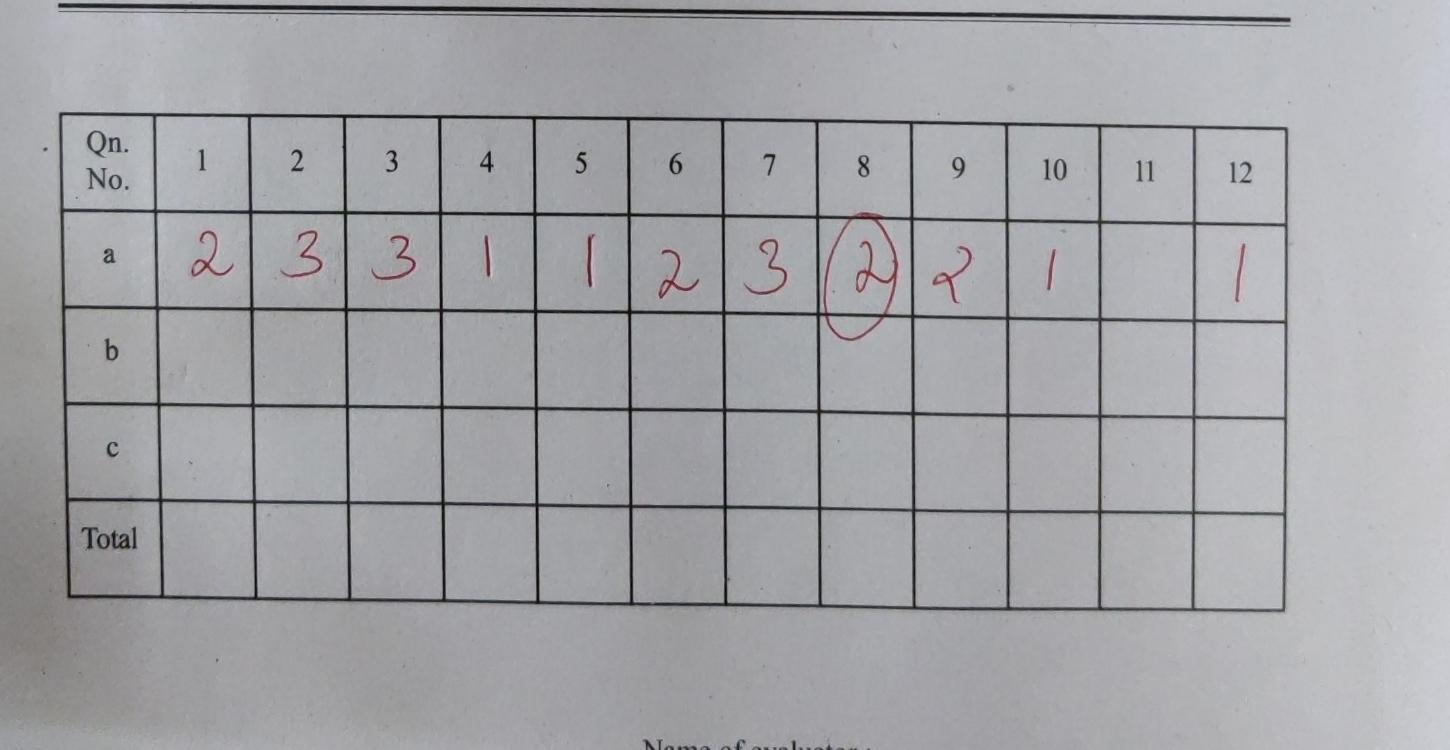 Qn. No. 1 2 3 4 5 6 7 8 9 10 11 12
a 2 3 3 1 1 2 3 2 2 1 1
b
c
Total
Name of evaluator :